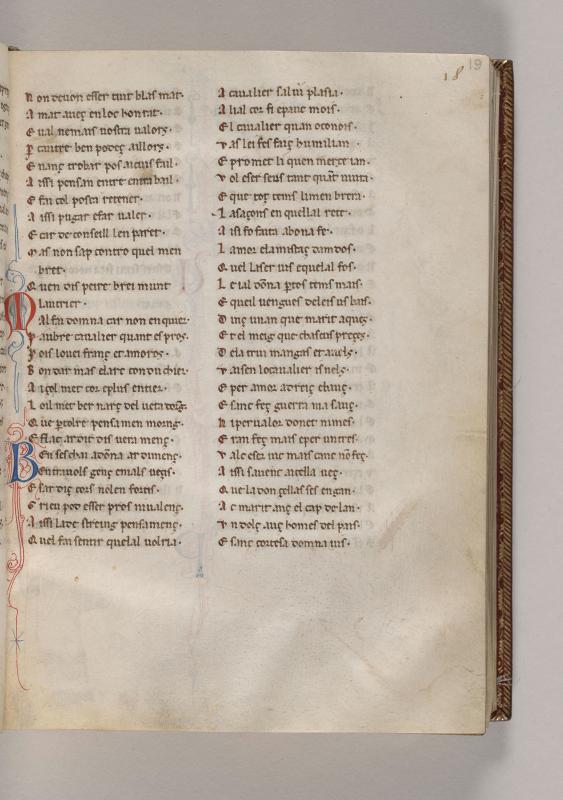 18 19
N on deuon esser tuit blasmat·
A mar aueç en loc hontat·
E ual nemais uostra ualors·
P cautre ben podeç aillors·
E nanç trobar pos aicuis fail·
A issi pensan entre cuita bail·
E fin col posca retener·
A issi pugar efar ualer·
E car de conseill len parer·
M as non sap contro quel men
bret·
Q uen dis peire bremunt
l autrier·
M al fin domna car non enquier·
P aubre caualier quant es pros·
P ois louei franç et amoros·
B on dar mas elarc conduchier·
A içol met cor eplus entier·
L oil met ber narç del uentadorn·
Q ue
E flac ardit dis uera menç·
B en seschai adona ardimenç·
E ntrauols genç emals ueçis·
E far diç cors nolen fortis·
E rieu pot esser pros niualenç·
A issi lade streing pensamenç·
Q uel fin sentir quelal uolria·
A caualier saluiplasta·
A lial cor si epauc mois·
E l caualier quan oconois·
V as lei fes faiç humilian·
E promet li quen merce ian·
V ol eser seus tant quant uiura·
E que toç tems
L asaçons en quellal retr·
A isi fo faita abona fe·
L amor elamistaç damdos·
Q uel laser uis equelal fos·
L eial dona per tos tems mais·
E queil uengues deleis us bais·
D inç unan que marit aques·
E t el meig que chascus preçes·
D ela trui mangas et auels·
V aisen locaualier isnels·
E per amor adreiç chauç·
E sanc feç guerra ma sauç·
N i per ualor donet nimes·
E ran feç mais eper un tres·
V alc eser uic mais camc non feç·
A issi sauenc aicella ueç·
Q ue la donçellas fes engan·
A c marit anç el cap de lan·
V n dolç auç homes del pais·
E sanc cortesa domna uis·